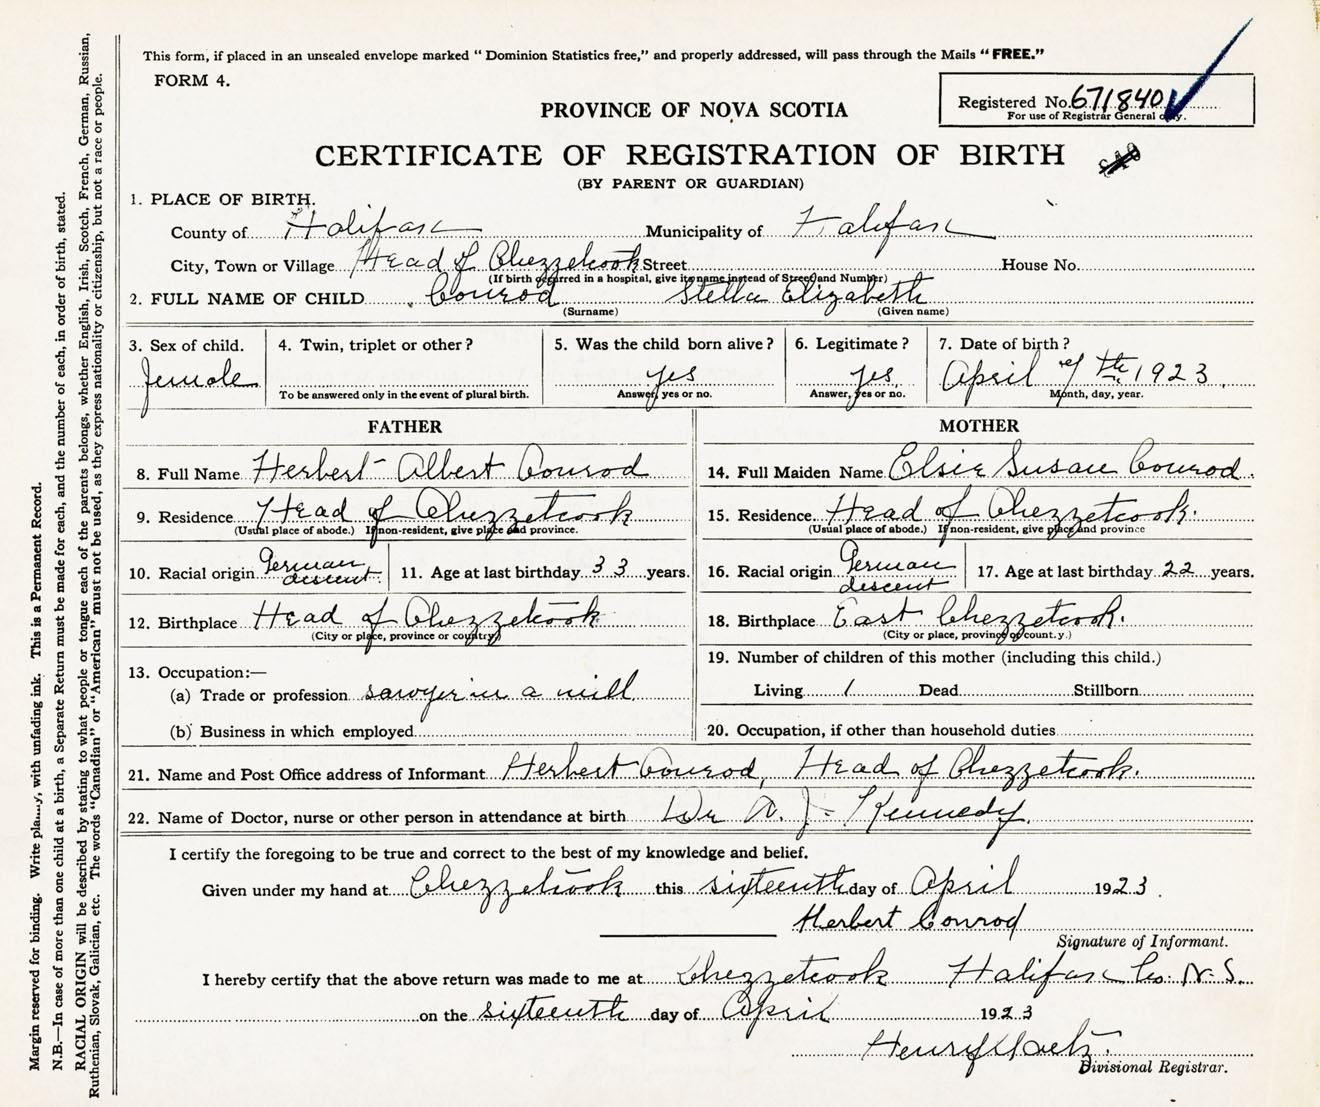 This form, if placed in an unsealed envelope marked " Dominion Statistics free," and properly addressed, will pass through the Mails " FREE."
FORM 4.
Registered No. 671840
For use of Registrar General
PROVINCE OF NOVA SCOTIA
CERTIFICATE OF REGISTRATION OF BIRTH
(BY PARENT OR GUARDIAN)
1. PLACE OF BIRTH.
County of Halifax Municipality of Halifax
City, Town or Village Head of Chezzetcook Street House No.
(If birth occurred in a hospital, give its name instead of Street and Number)
2. FULL NAME OF CHILD Conrod Stella Elizabeth
(Surname) (Given name)
3. Sex of child. 4. Twin, triplet or other? 5. Was the child born alive? 6. Legitimate? 7. Date of birth?
Female yes yes April 7th 1923
To be answered only in the event of plural birth. Answer, yes or no. Answer, yes or no. Month, day, year.
FATHER MOTHER
8. Full Name Herbert Albert Conrod 14. Full Maiden Name Elsie Susan Conrod
9. Residence Head of Chezzetcook 15. Residence Head of Chezzetcook.
(Usual place of abode.) If non-resident, give place and province. (Usual place of abode.) If non-resident, give place and province
10. Racial origin German descent 11. Age at last birthday 33 years. 16. Racial origin German descent 17. Age at last birthday 22 years.
12. Birthplace Head of Chezzetcook 18. Birthplace East Chezzetcook.
(City or place, province or country) (City or place, province or count.y.)
13. Occupation:— 19. Number of children of this mother (including this child.)
(a) Trade or profession sawyer in a mill Living 1 Dead Stillborn
(b) Business in which employed 20. Occupation, if other than household duties
21. Name and Post Office address of Informant Herbert Conrod, Head of Chezzetcook.
22. Name of Doctor, nurse or other person in attendance at birth Dr A. J. Kennedy.
I certify the foregoing to be true and correct to the best of my knowledge and belief.
Given under my hand at Chezzetcook this sixteenth day of April 1923.
Herbert Conrod
Signature of Informant.
I hereby certify that the above return was made to me at Chezzetcook Halifax Co. N.S.
on the sixteenth day of April 1923
Henry
Divisional Registrar.
Margin reserved for binding. Write with unfading ink. This is a Permanent Record.
N.B.—In case of more than one child at a birth, a Separate Return must be made for each, and the number of each, in order of birth, stated.
RACIAL ORIGIN will be described by stating to what people or tongue each of the parents belongs, whether English, Irish, Scotch, French, German, Russian,
Ruthenian, Slovak, Galician, etc. The words "Canadian" or "American" must not be used, as they express nationality or citizenship, but not a race or people.